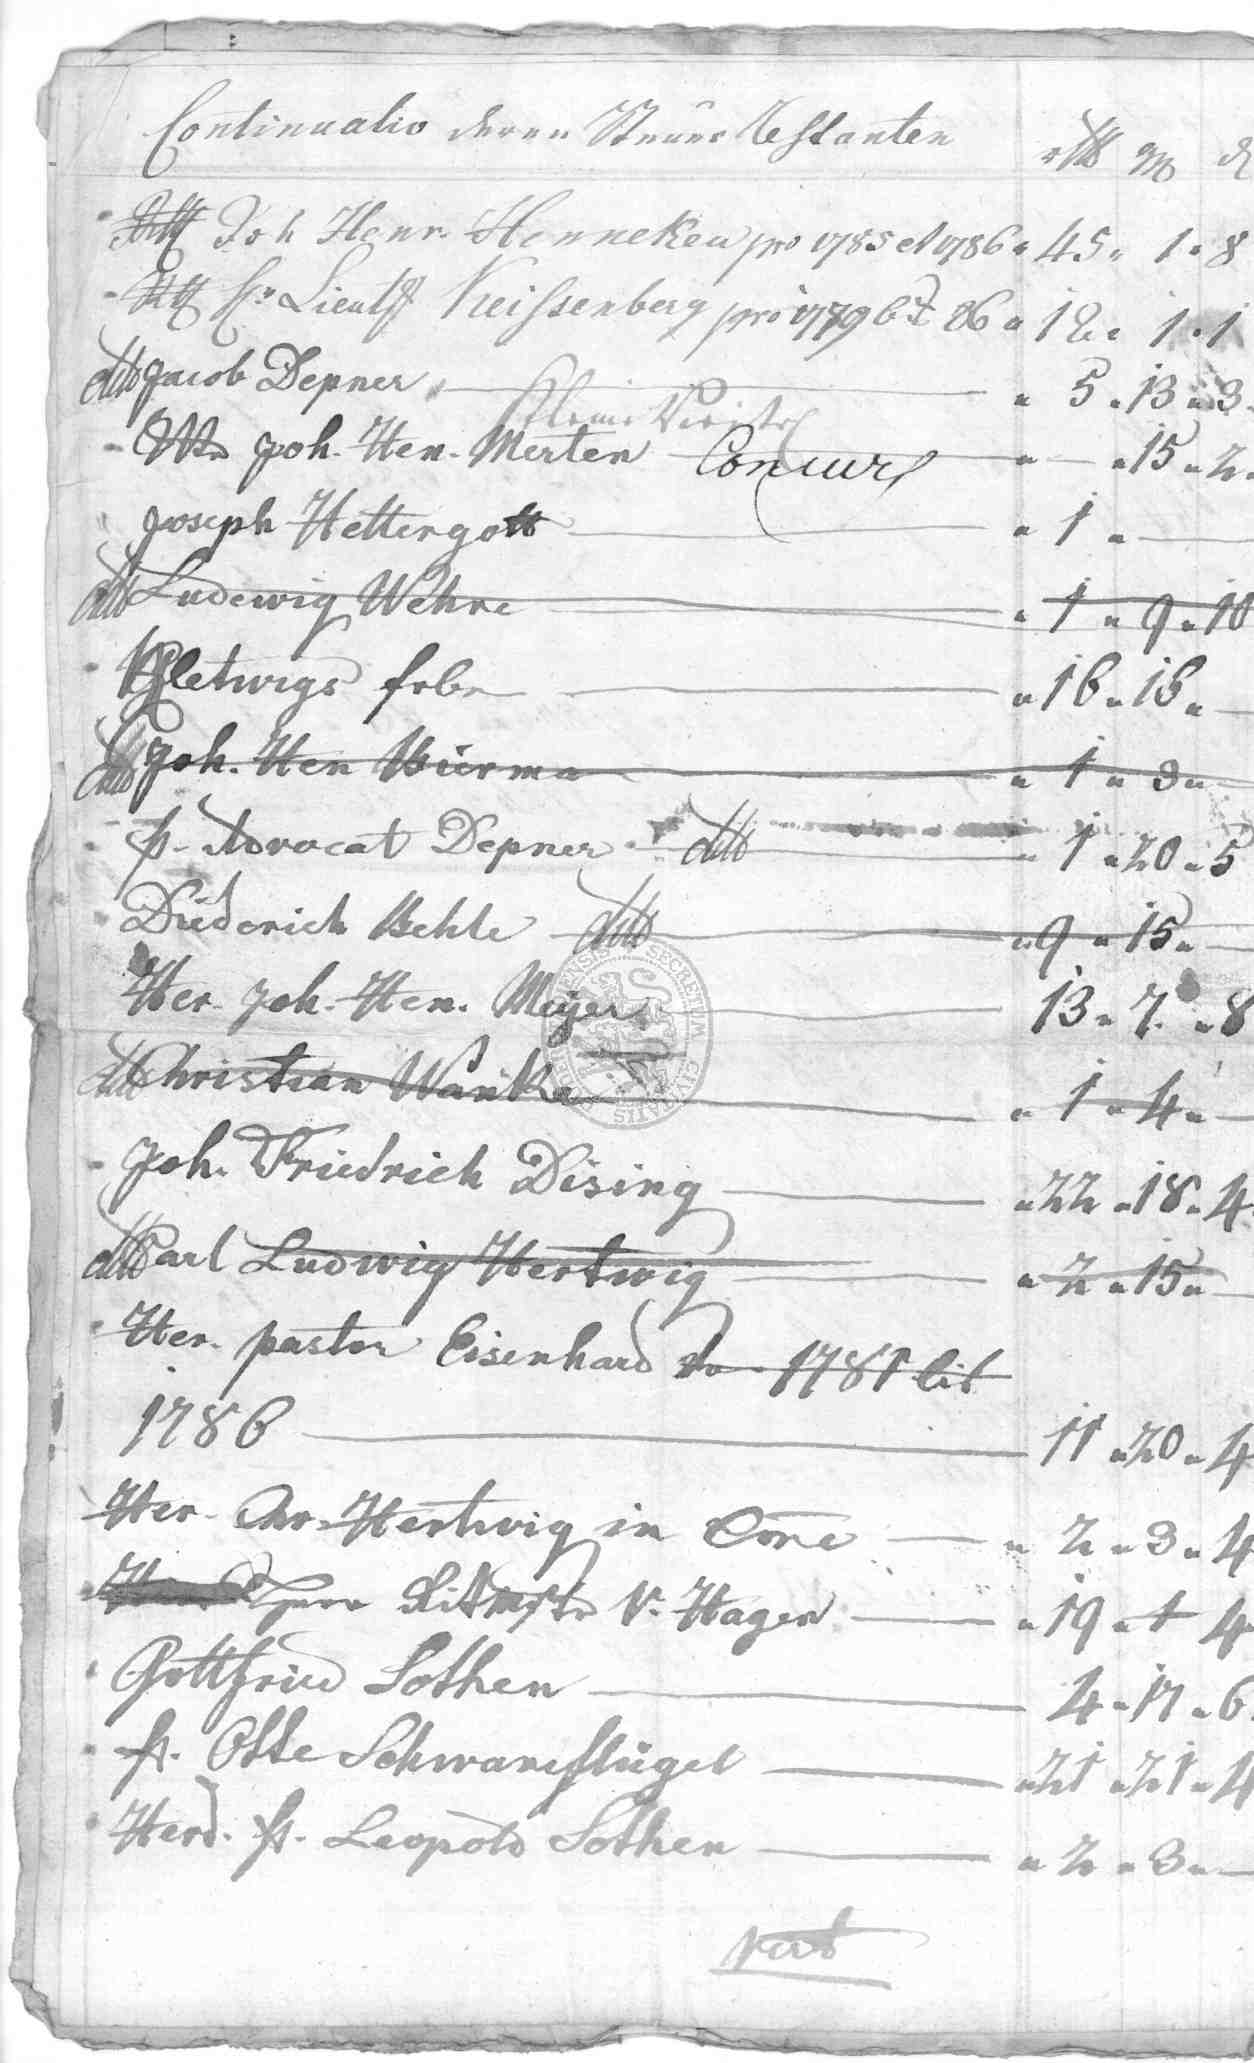 Continuatio deren Steuer Restanten
rthl mg d
Joh Henr. Henneken pro 1785 et 1786 45 1 8
Hr Lieut Keissenberg pro 1779 bis 86 12 1 1
dtt Jacob Depner 5 13 3
Joh. Hen. Merten Concurs — 15 2
Joseph Hettergott 1 —
dtt Ludewig Wehre 1 9 10
Hletwigs Erbe 16 16 —
dtt Joh. Hen Buerma 1 3 —
H. Advocat Depner dtt 1 20 5
Diederich Behle dtt 9 15 —
Her Joh. Hen. Meÿer 13 7 8
SECRETUM CIVITATIS
dtt Christian Wanke 1 4 —
Joh. Friedrich Dising 22 18 4
dtt Carl Ludwig Hertwig 2 15 —
Her pastor Eisenhard von 1781 bit
1786 11 20 4
Her. Chr. Hertwig in Core 2 3 4
Herr Ritmstr v. Hagen 19 1 4
Gottfried Sothen 4 17 6
H. Otte Schwaneflügel 21 21 4
Herd. H. Leopold Sothen 2 3 —
vert